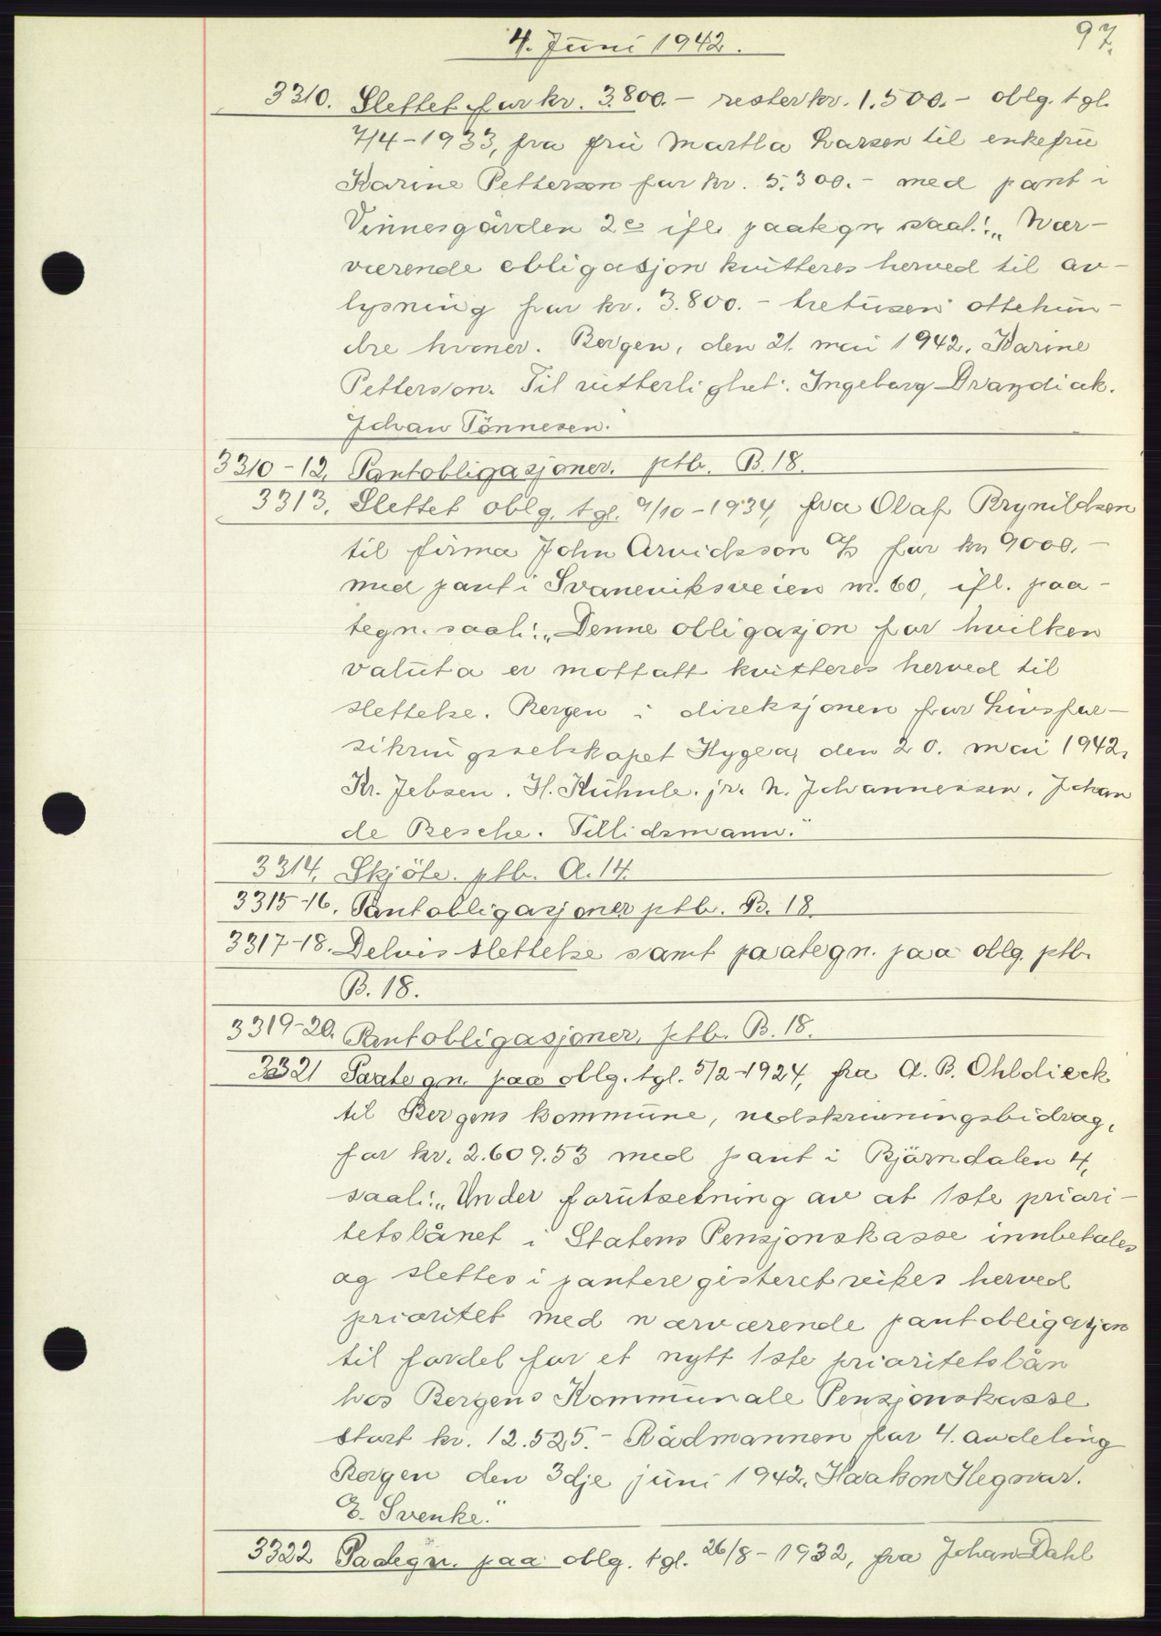 97.
4. Juni 1942.
3310. Slettet for kr. 3.800.- rester kr. 1.500.- oblg. tgl.
7/4-1933, fra fru Martha Larsen til enkefru
Karine Petterson for kr. 5.300.- med pant i
Vinnesgården 2c ifl. paategn. saal.: „Nær-
værende obligasjon kvitteres herved til av-
lysning for kr. 3.800.- tretusen ottehun-
dre kroner. Bergen, den 21. mai 1942. Karine
Petterson. Til vitterlighet: Ingeborg Drazdiak.
Johan Tönnesen."
3310-12. Pantobligasjoner. ptb. B. 18.
3313. Slettet oblg. tgl. 9/10-1934, fra Olaf Brynildsen
til firma John Arvidsson A/S for kr. 9000.-
med pant i Svaneviksveien nr. 60, ifl. paa-
tegn. saal.: „Denne obligasjon for hvilken
valuta er mottatt kvitteres herved til
slettelse. Bergen i direksjonen for Livsfor-
sikringsselskapet Hygea, den 20. mai 1942.
Kr. Jebsen. H. Kühnle. jr. N. Johannessen. Johan
de Besche. Tillidsmann."
3314. Skjöte. ptb. A. 14.
3315-16. Pantobligasjoner ptb. B. 18.
3317-18. Delvis slettelse samt paategn. paa oblg. ptb.
B. 18.
3319-20. Pantobligasjoner. ptb. B. 18.
3321 Paategn. paa oblg. tgl. 5/2-1924, fra A. B. Ohldieck
til Bergens kommune, nedskrivningsbidrag,
for kr. 2.609.53 med pant i Bjørndalen 4,
saal.: „Under forutsetning av at 1ste priori-
tetslånet i Statens Pensjonskasse innbetales
og slettes i panteregisteret vikes herved
prioritet med nærværende pantobligasjon
til fordel for et nytt 1ste prioritetslån
hos Bergens Kommunale Pensjonskasse
stort kr. 12.525.- Rådmannen for 4. avdeling
Bergen den 3dje juni 1942. Haakon Hegnar.
E. Svenke."
3322 Padegn. paa oblg. tgl. 26/8-1932, fra Johan Dahl